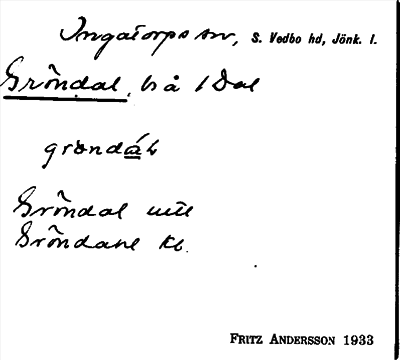 Ingatorps sn, S. Vedbo hd, Jönk. l.
Gröndal, bå 1 Dal
grøndál
Gröndal
Gröndahl kb.
FRITZ ANDERSSON 1933